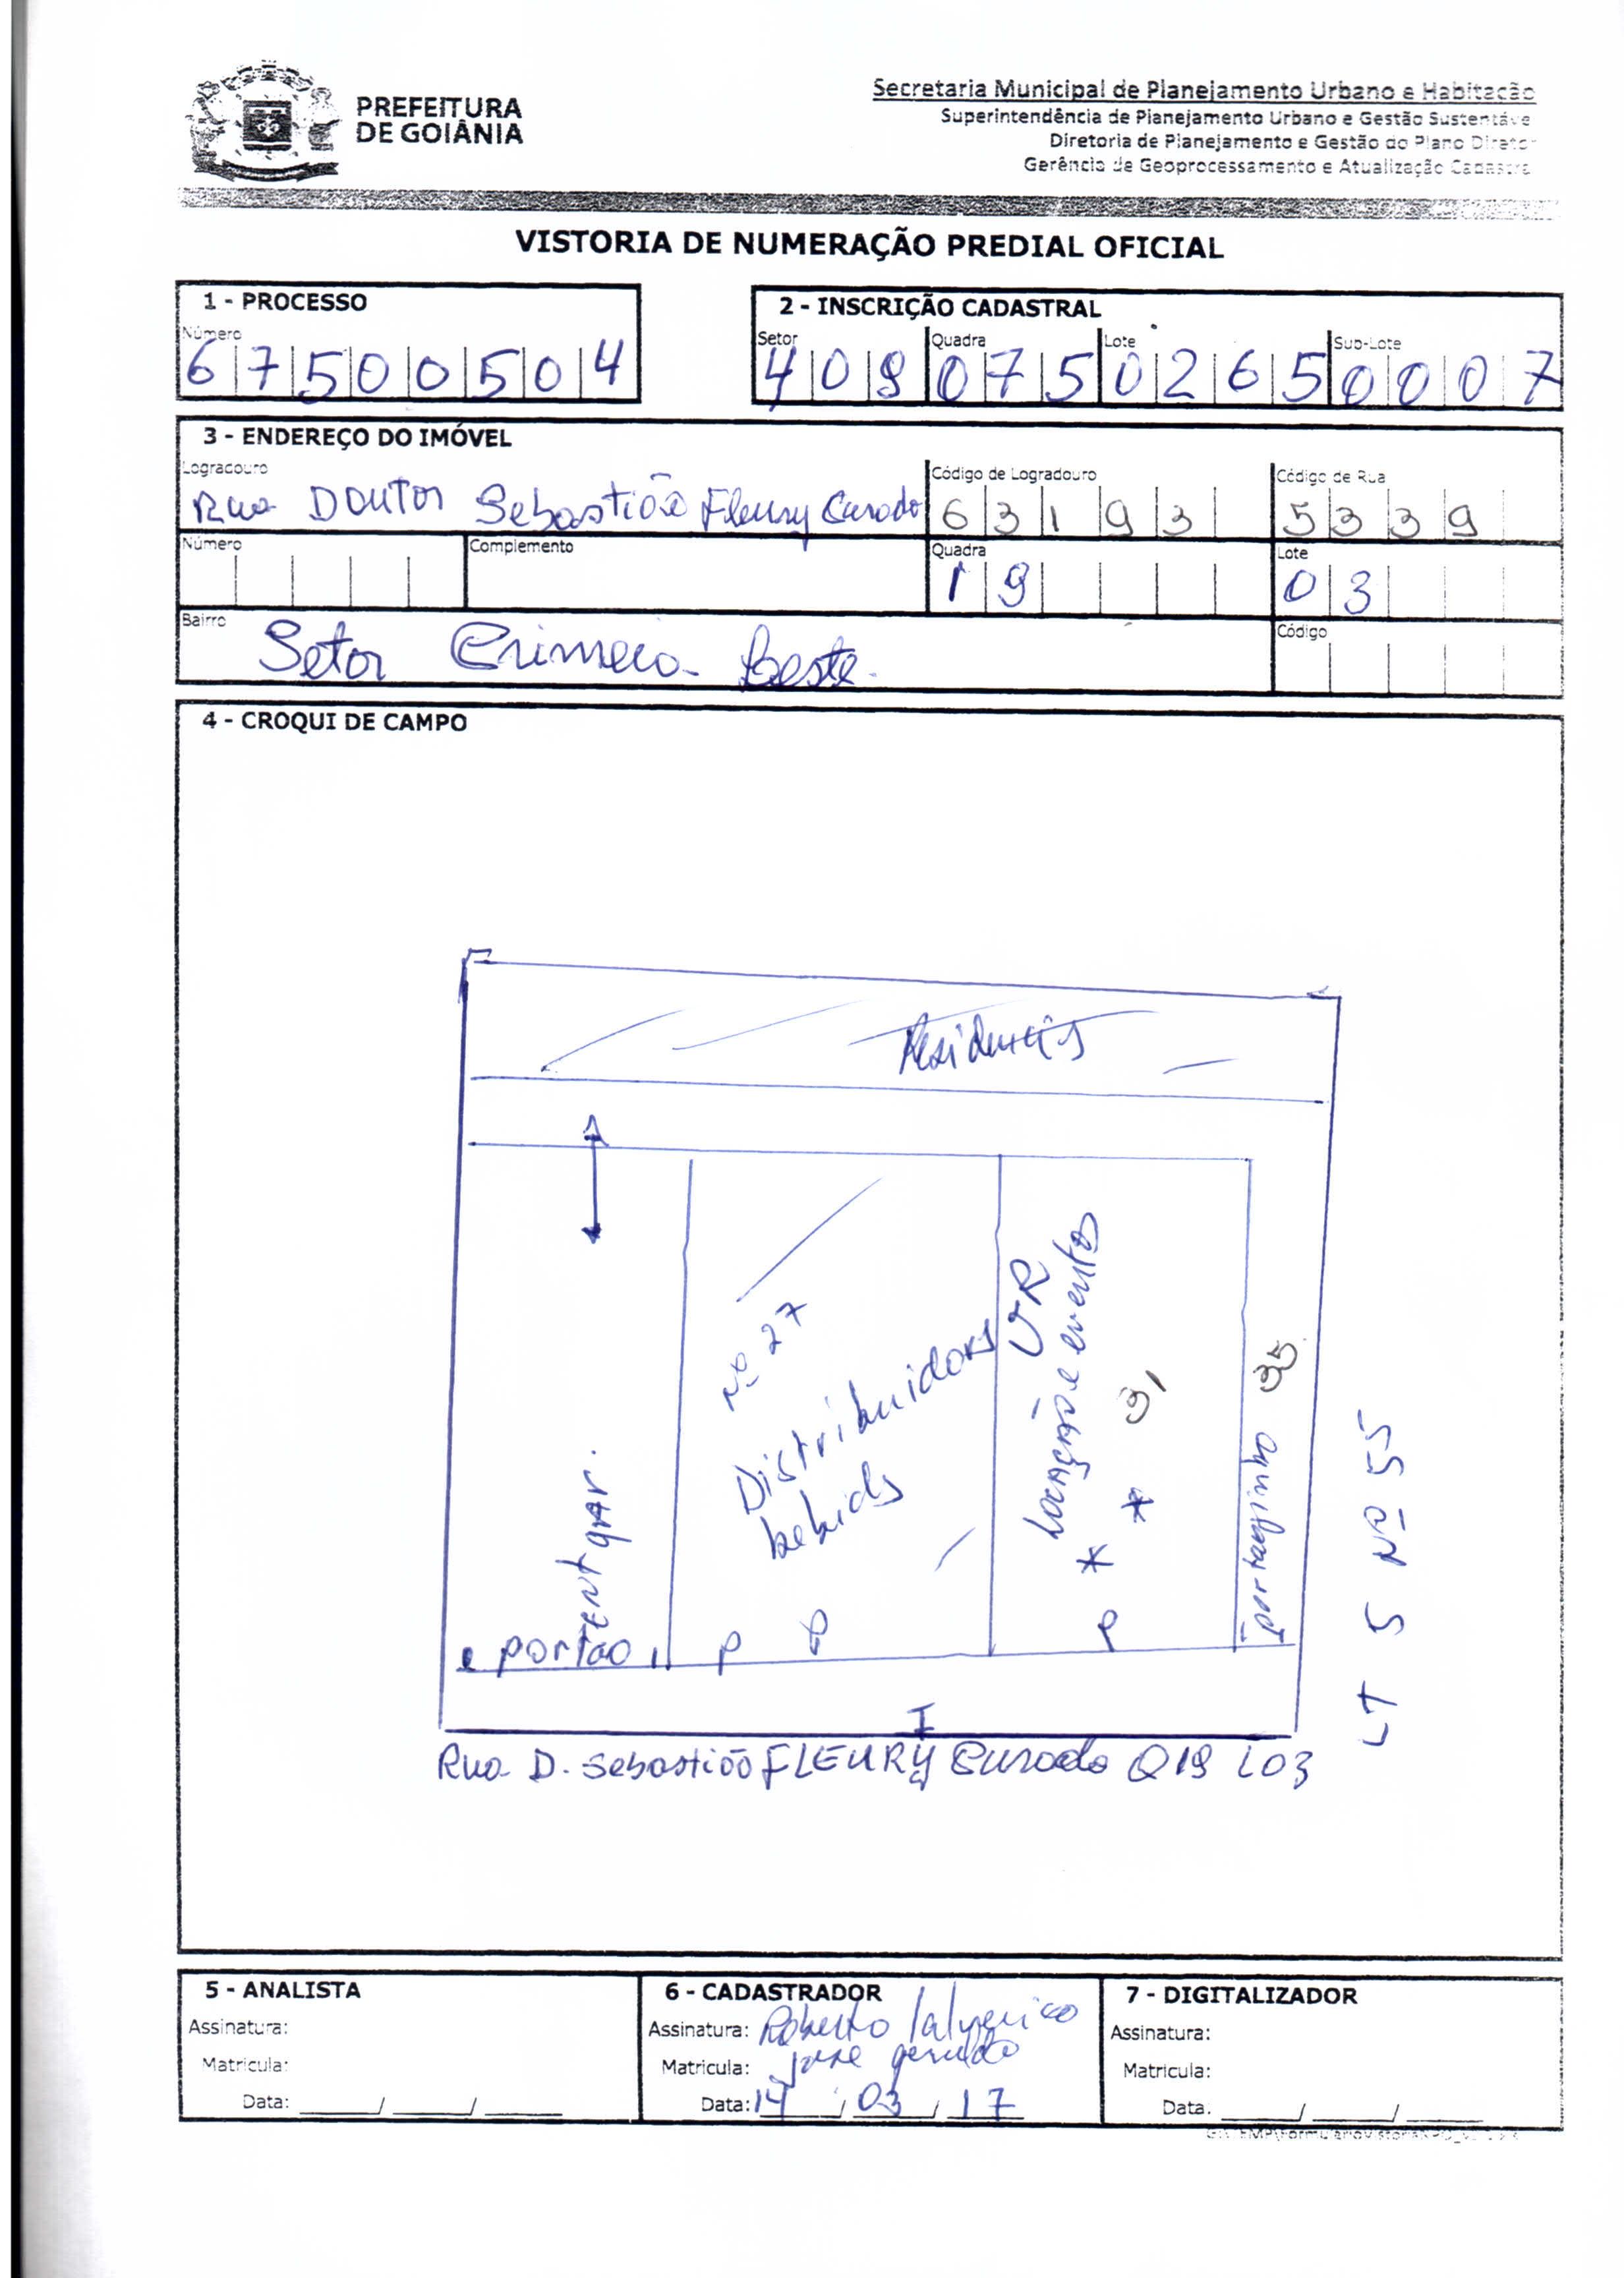 PREFEITURA
DE GOIÂNIA
Secretaria Municipal de Planejamento Urbano e Habitação
Superintendência de Planejamento Urbano e Gestão Sustentáve
Diretoria de Planejamento e Gestão do Plano Diretor
Gerência de Geoprocessamento e Atualização Cadastra
VISTORIA DE NUMERAÇÃO PREDIAL OFICIAL
1 - PROCESSO
Número
67500504
2 - INSCRIÇÃO CADASTRAL
Setor Quadra Lote Sub-Lote
409 075 0265 0007
3 - ENDEREÇO DO IMÓVEL
Logradouro Código de Logradouro Código de Rua
Rua Doutor Sebastião Fleury Curado 63193 5339
Número Complemento Quadra Lote
19 03
Bairro Código
Setor Crimeia Leste
4 - CROQUI DE CAMPO
Residencias
Nº 27
Distribuidora
bebidas
VR
Locação e eventos
* * 31
portãozinho 35
ent gar.
portão
P P P
I
LT 5 Nº 55
Rua D. Sebastião FLEURY Curado Q19 L03
5 - ANALISTA
Assinatura:
Matricula:
Data: ___/___/___
6 - CADASTRADOR
Assinatura: Roberto
Matricula: Jose geraldo
Data: 14/03/17
7 - DIGITALIZADOR
Assinatura:
Matricula:
Data. ___/___/___